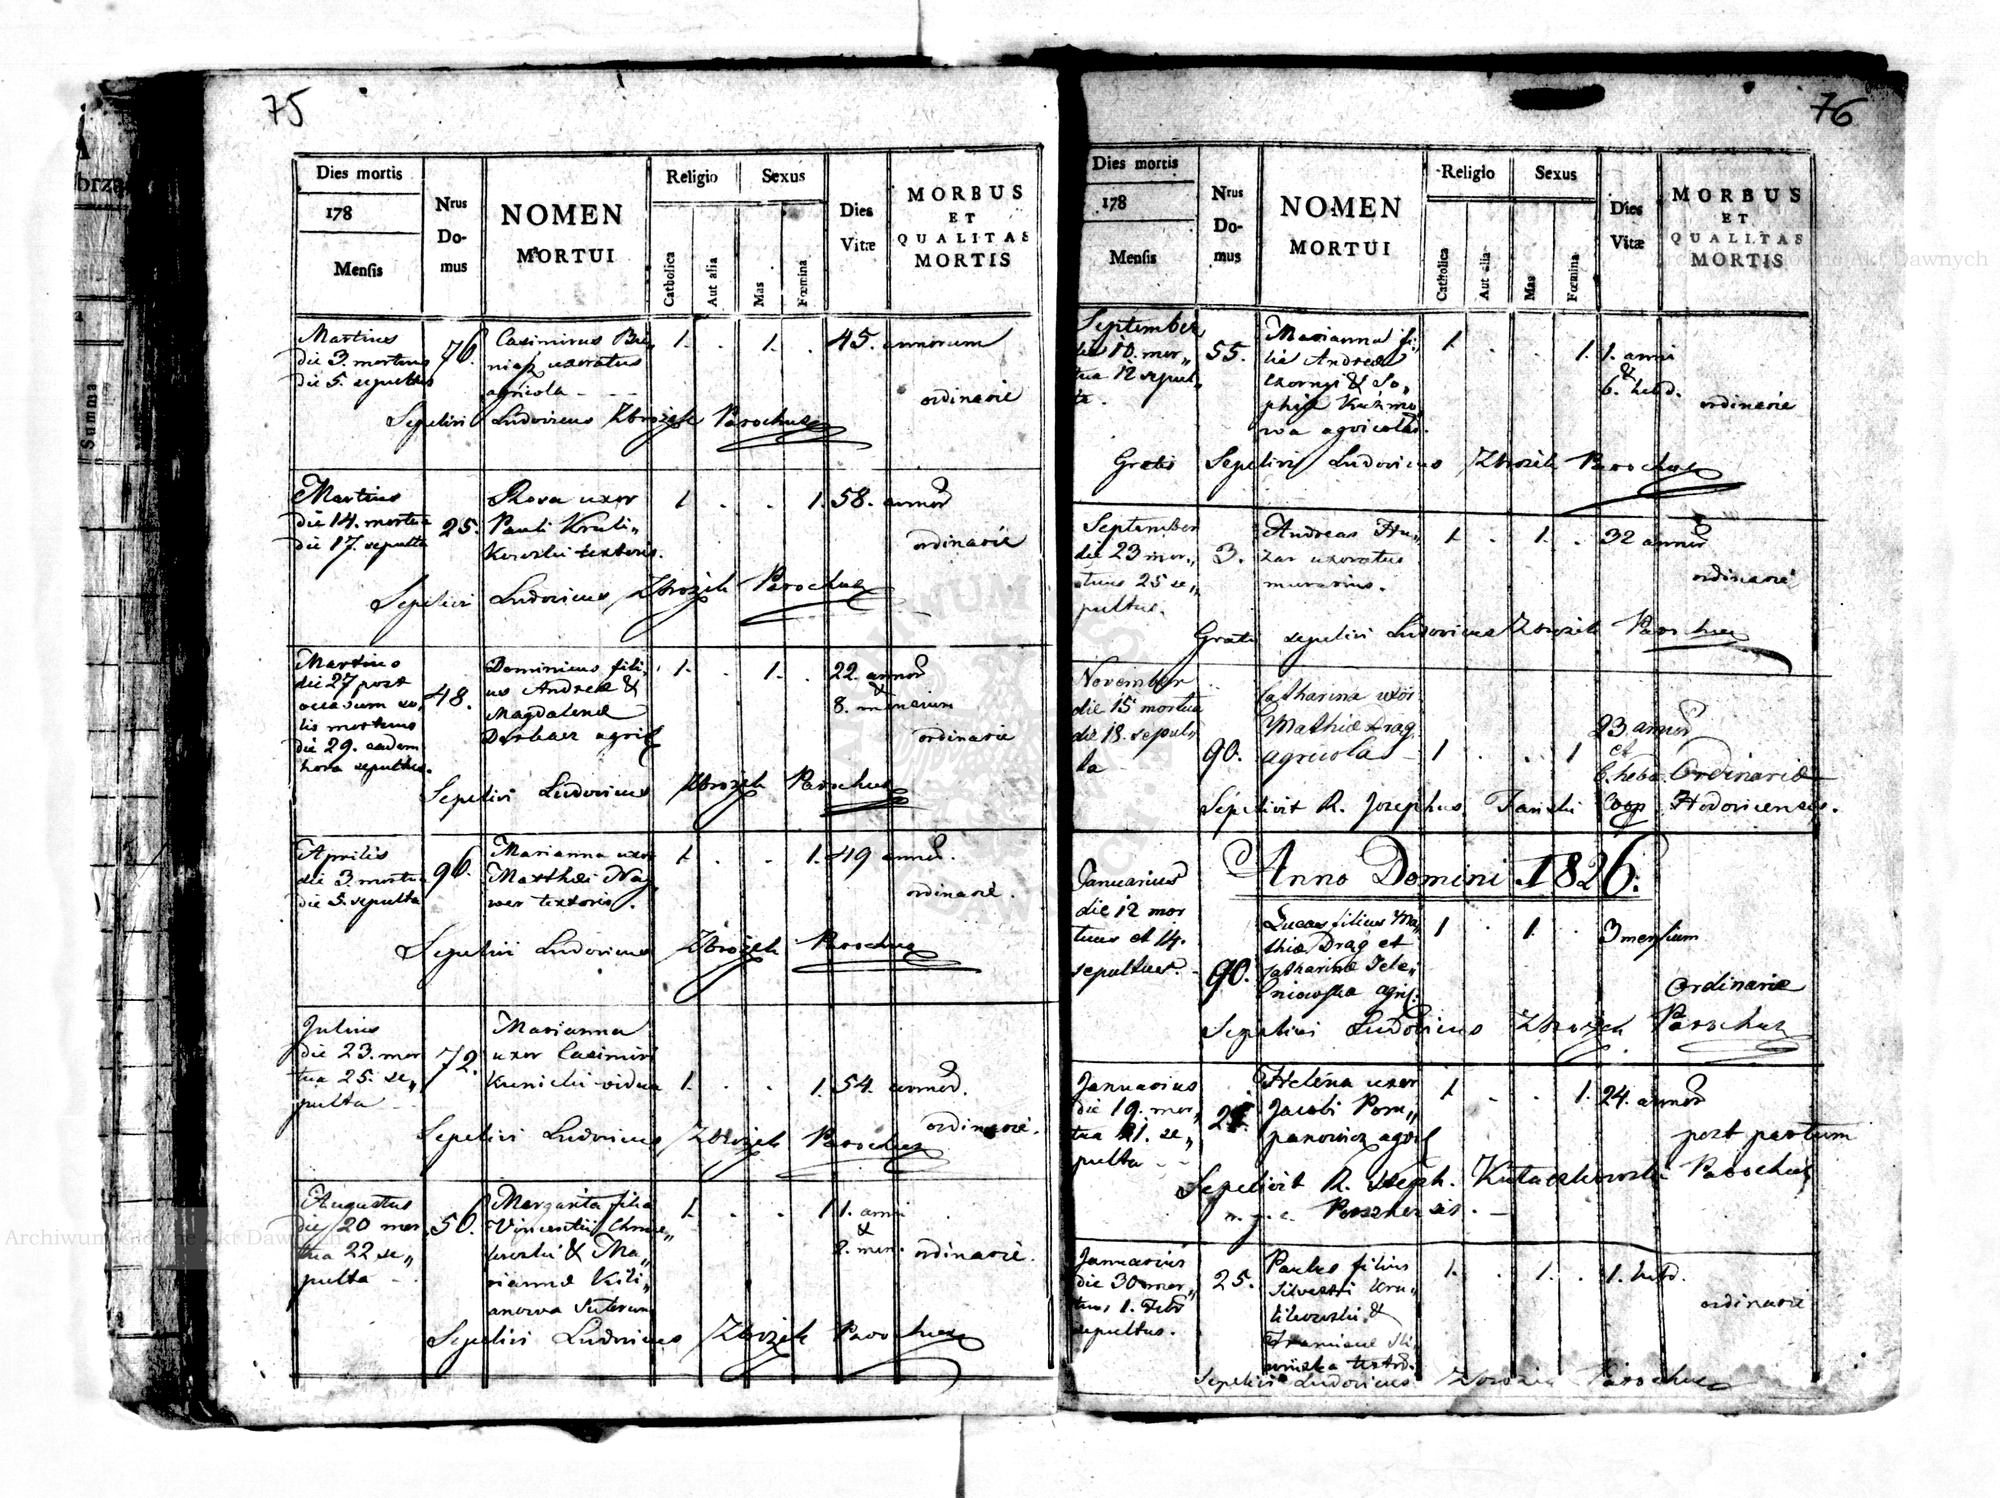 75
Dies mortis
178
Mensis
Nrus
Do-
mus
NOMEN
MORTUI
Religio
Catholica
Aut alia
Sexus
Mas
Fœmina
Dies
Vitæ
MORBUS
ET
QUALITAS
MORTIS
Martius
die 3. mortuus
die 5. sepultus
76.
Casimirus
uxoratus
agricola
1. . 1. .
45. annorum
ordinarie
Sepelivi Ludovicus Zbrożek Parochus
Martius
die 14. mortua
die 17. sepulta
25.
Rosa uxor
Pauli Kruli„
kowski textoris.
1. . . 1.
58. annor
ordinarie
Sepelivi Ludovicus Zbrożek Parochus
Martius
die 27 post
occasum so„
lis mortuus
die 29. eadem
hora sepultus.
48.
Dominicus fili„
us Andreæ &
Magdalenæ
agric
1. . 1. .
22. annor
&
8. mensium
ordinarie
Sepelivi Ludovicus Zbrożek Parochus
Aprilis
die 3. mortua
die 5. sepulta
96.
Marianna uxor
Matthæi Na„
wer textoris.
1. . . 1.
49 annor.
ordinarie.
Sepelivi Ludovicus Zbrożek Parochus
Julius
die 23. mor
tua 25. se„
pulta
72.
Marianna
uxor Casimiri
Kunicki vidua
1. . . 1.
54. annor.
ordinarie.
Sepelivi Ludovicus Zbrożek Parochus
Augustus
die 20 mor
tua 22 se„
pulta
56.
Margarita filia
Vincentii Chmie„
lewski & Ma„
riannæ Kili„
anowa
1. . . 1
1. anni
&
2. men.
ordinarie.
Sepelivi Ludovicus Zbrożek Parochus
76
Dies mortis
178
Mensis
Nrus
Do-
mus
NOMEN
MORTUI
Religio
Catholica
Aut alia
Sexus
Mas
Fœmina
Dies
Vitæ
MORBUS
ET
QUALITAS
MORTIS
September
die 10. mor„
tua 12 sepul„
ta.
55.
Marianna fi„
lia Andreæ
Czornyi & So„
phiæ Kuźmo„
wa agricolar.
1 . . 1.
1. anni
&
6. hebd.
ordinarie
Gratis Sepelivi Ludovicus Zbrożek Parochus
September
die 23 mor„
tuus 25 se„
pultus.
3.
Andreas Hu„
zar uxoratus
murarius.
1 . 1. .
32 annor
ordinarie
Gratis sepelivi Ludovicus Zbrożek Parochus
November
die 15 mortua
die 18. sepul„
ta
90.
Catharina uxor
Mathiæ Drag
agricolæ
1 . . 1
23 annor
et
6. hebd.
Ordinariæ
Sepelivit R. Josephus Coop. Hodovicensis.
Anno Domini 1826.
Januarius
die 12 mor
tuus et 14.
sepultus.
90.
Lucas filius Ma„
thiæ Drag et
Catharinæ Tele„
niowska agric.
1 . 1. .
3 mensium
Ordinariæ
Sepelivi Ludovicus Zbrożek Parochus
Januarius
die 19. mor„
tua 21. se„
pulta
Helena uxor
Jacobi Rom„
panowicz agric
1 . . 1.
24. annor
post partum
Sepelivit R. Steph. Parochus
Januarius
die 30 mor„
tuus 1. Febr
sepultus.
25.
Paulus filius
Silvestri Kru„
likowski &
textor.
1. . 1. .
1. hebd.
ordinarie
Sepelivi Ludovicus Zbrożek Parochus
Summa
Archiwum Główne Akt Dawnych